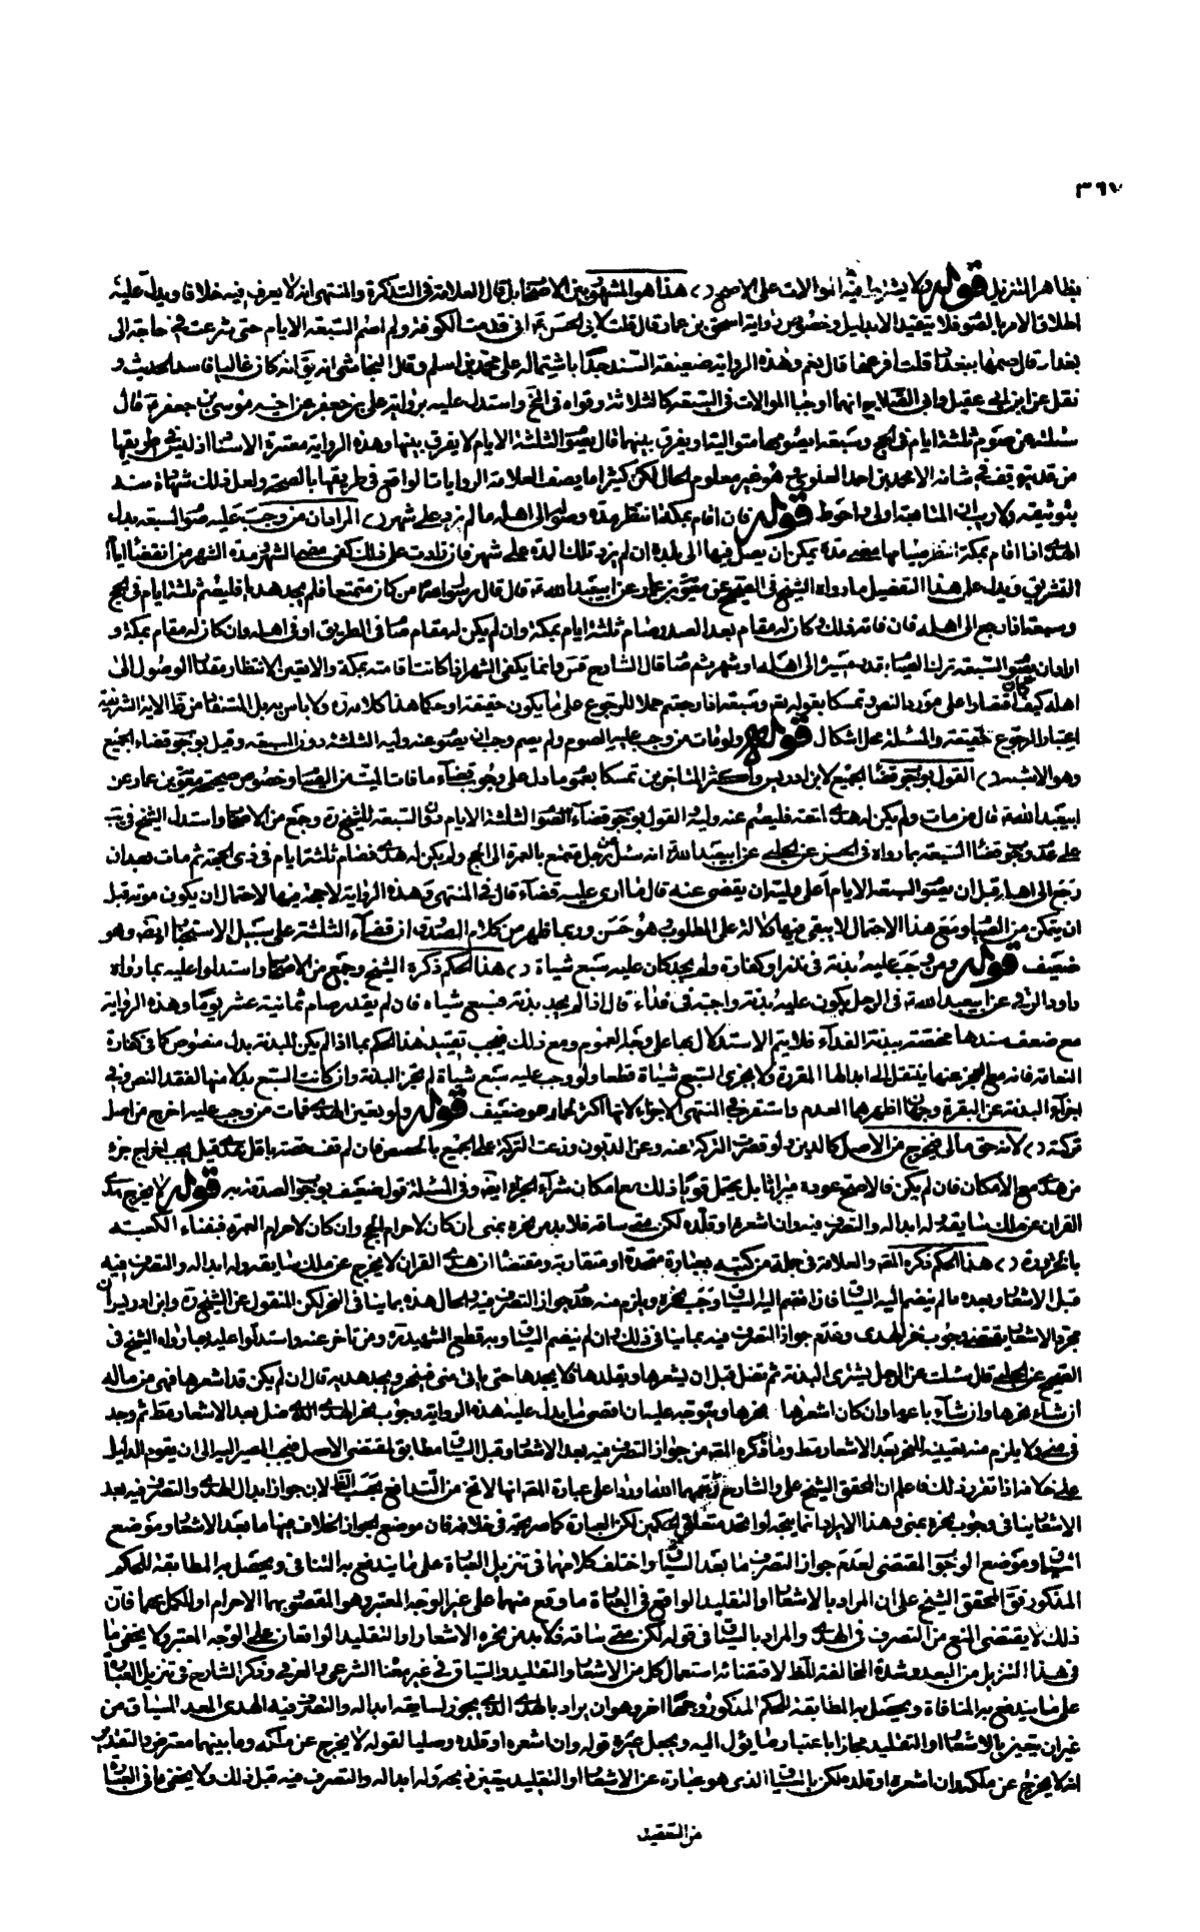 ٣٦٧
بظاهر التنزيل قوله ولا يشترط فيها الموالات على الاصح هذا هو المشهور بين الاصحاب بل قال العلامة في التذكرة والمنتهى انه لا يعرف فيه خلافا ويدل عليه
اطلاق الامر بالصوم فلا يتقيد الا بدليل وخصوص رواية اسحق بن عمار قال قلت لابي الحسن اني قدمت الكوفة ولم اصم السبعة الايام حتى نزعت في حاجة الى
بغداد قال صمها ببغداد قلت افرقها قال نعم وهذه الرواية ضعيفة السند جدا باشتماله على محمد بن اسلم وقال النجاشي انه يق انه كان غاليا فاسد الحديث و
نقل عن ابن ابي عقيل وابي الصلاح انهما اوجبا الموالات في السبعة كالثلاثة وقواه في المخ واستدل عليه برواية علي بن جعفر عن اخيه موسى بن جعفر قال
سئلته عن صوم ثلثة ايام في الحج وسبعة ايصومها متوالية او يفرق بينهما قال يصوم الثلثة الايام لا يفرق بينها وهذه الرواية معتبرة الاسناد اذ ليس في طريقها
من قد يتوقف في شانه الا محمد بن احمد العلوي هو غير معلوم الحال لكن كثيرا ما يصف العلامة الروايات الواقع في طريقها بالصحة ولعل ذلك شهادة منه
بتوثيقه ولا ريب ان المتابعة اولى واحوط قوله فان اقام بمكة انتظر مدة وصوله الى اهله ما لم يزد على شهر المراد ان من وجب عليه صوم السبعة بدل
الهدي اذا اقام بمكة انتظر بصيامها مضي مدة يمكن ان يصل فيها الى بلده ان لم يزد تلك المدة على شهر فان زادت على ذلك كفى مضي الشهر ومبدء الشهر من انقضاء ايام
التشريق ويدل على هذا التفصيل ما رواه الشيخ في الصحيح عن معوية بن عمار عن ابيعبد الله قال قال رسول الله من كان متمتعا فلم يجد هديا فليصم ثلثة ايام في الحج
وسبعة اذا رجع الى اهله فان فاته ذلك وكان له مقام بعد الصدر صام ثلثة ايام بمكة وان لم يكن له مقام صام في الطريق او في اهله وان كان له مقام بمكة و
اراد ان يصوم السبعة ترك الصيام بقدر مسيره الى اهله او شهر ثم صام قال الشارح وانما يكفي الشهر اذا كانت اقامته بمكة والا تعين الانتظار بمقدار الوصول الى
اهله كيف كان اقتصارا على مورد النص وتمسكا بقوله تعالى وسبعة اذا رجعتم حملا للرجوع على ما يكون حقيقة او حكما هذا كلامه ولا باس به بل المستفاد من ظ الاية الشريفة
اعتبار الرجوع حقيقة والمسئلة محل اشكال قوله ولو مات من وجب عليه الصوم ولم يصم وجب ان يصوم عنه وليه الثلثة دون السبعة وقيل بوجوب قضاء الجميع
وهو الاشبه القول بوجوب قضاء الجميع لابن ادريس واكثر المتاخرين تمسكا بعموم ما دل على وجوب قضاء ما فات الميت من الصيام وخصوص صحيحة معوية بن عمار عن
ابيعبد الله قال من مات ولم يكن له هدي لمتعته فليصم عنه وليه القول بوجوب قضاء الصوم الثلثة الايام دون السبعة للشيخ وجمع من الاصحاب واستدل الشيخ في يب
على عدم وجوب قضاء السبعة بما رواه في الحسن عن الحلبي عن ابيعبد الله انه سئل عن رجل تمتع بالعمرة الى الحج ولم يكن له هدي فصام ثلثة ايام في ذي الحجة ثم مات بعد ان
رجع الى اهله قبل ان يصوم السبعة الايام اعلى وليه ان يقضي عنه قال ما ارى عليه قضاء قال في المنتهى وهذه الرواية لا حجة فيها لاحتمال ان يكون موته قبل
ان يتمكن من الصيام ومع هذا الاحتمال لا يبقى فيها دلالة على المطلوب هو حسن وربما ظهر من كلام الصدوق ان قضاء الثلثة على سبيل الاستحباب ايضا وهو
ضعيف قوله ومن وجب عليه بدنة في نذر او كفارة ولم يجد كان عليه سبع شياه هذا الحكم ذكره الشيخ وجمع من الاصحاب واستدلوا عليه بما رواه
داود الرقي عن ابيعبد الله في الرجل يكون عليه بدنة واجبة في فداء قال اذا لم يجد بدنة فسبع شياه فان لم يقدر صام ثمانية عشر يوما وهذه الرواية
مع ضعف سندها مختصة ببدنة الفداء فلا يتم الاستدلال بها على وجه العموم ومع ذلك فيجب تقييد هذا الحكم بما اذا لم يكن للبدنة بدل منصوص كما في كفارة
النعامة فانه مع العجز عنها ينتقل الى ابدالها المقررة ولا يجزي السبع شياه قطعا ولو وجب عليه سبع شياه لم يجز البدنة وان كانت السبع بدلا منها لفقد النص وفي
اجزاء البدنة عن البقرة وجهان اظهرهما العدم واستقرب في المنتهى الاجزاء لانها اكثر لحما وهو ضعيف قوله ولو تعين الهدي فمات من وجب عليه اخرج من اصل
تركته لانه حق مالي فيخرج من الاصل كالدين ولو قصرت التركة عنه وعن الديون وزعت التركة على الجميع بالحصص فان لم تف حصته باقل هدي قيل يجب اخراج جزء
من هدي مع الامكان فان لم يكن فالاصح عوده ميراثا بل يحتمل قويا ذلك مع امكان شراء الجزء ايضا وفي المسئلة قول ضعيف بوجوب الصدقة به قوله لا يخرج هدي
القران عن ملك سايقه وله ابداله والتصرف فيه وان اشعره او قلده لكن متى ساقه فلا بد من نحره بمنى ان كان لاحرام الحج وان كان لاحرام العمرة فبفناء الكعبة
بالحزورة هذا الحكم ذكره المص والعلامة في جملة من كتبه بعبارة متحدة او متقاربة ومقتضاه ان هدي القران لا يخرج عن ملك سايقه وله ابداله والتصرف فيه
قبل الاشعار وبعده ما لم ينضم اليه السياق فاذا انضم اليه السياق وجب نحره ويلزم منه عدم جواز التصرف فيه والحال هذه بما ينافي النحر لكن المنقول عن الشيخ وابن ادريس ان
مجرد الاشعار يقتضي وجوب نحر الهدي وعدم جواز التصرف فيه بما ينافي ذلك وان لم ينضم السياق وبه قطع الشهيد ومن تاخر عنه واستدلوا عليه بما رواه الشيخ في
الصحيح عن الحلبي قال سئلت عن الرجل يشتري البدنة ثم تضل قبل ان يشعرها ويقلدها فلا يجدها حتى ياتي منى فينحر ويجد هديه قال ان لم يكن قد اشعرها فهي من ماله
ان شاء نحرها وان شاء باعها وان كان اشعرها نحرها ويتوجه عليه ان اقصى ما يدل عليه هذه الرواية وجوب نحر الهدي الذي ضل بعد الاشعار مط ثم وجد
في منى ولا يلزم منه تعيينه للنحر بعد الاشعار مط وما ذكره المص من جواز التصرف فيه بعد الاشعار وقبل السياق مطابق لمقتضى الاصل فيجب المصير اليه الى ان يقوم الدليل
على خلافه اذا تقرر ذلك فاعلم ان المحقق الشيخ علي والشارح رحمهما الله اوردا على عبارة المص انها لا تخ من التدافع بحسب الظ لان جواز ابدال الهدي والتصرف فيه بعد
الاشعار ينافي وجوب نحره بمنى وهذا الايراد انما يتجه لو اتحد متعلق الحكمين لكن العبارة كالصريحة في خلافه فان موضع الجواز الخلاف فيها ما بعد الاشعار وموضع
السياق وموضع الوجوب المقتضي لعدم جواز التصرف ما بعد السياق واختلف كلامهما في تنزيل العبارة على ما يندفع به التنافي ويحصل به المطابقة للحكم
المذكور فق المحقق الشيخ علي ان المراد بالاشعار والتقليد الواقع في العبارة ما وقع منهما على غير الوجه المعتبر وهو المقصود بهما الاحرام او المكمل بهما فان
ذلك لا يقتضي المنع من التصرف في الهدي والمراد بالسياق في قوله لكن متى ساقه فلا بد من نحره الاشعار او التقليد الواقعان على الوجه المعتبر ولا يخفى ما
في هذا التنزيل من البعد وشدة المخالفة للظ لاقتضائه استعمال كل من الاشعار والتقليد والسياق في غير معناه الشرعي والعرفي وذكر الشارح في تنزيل العبارة
على ما يندفع به المنافاة ويحصل به المطابقة للحكم المذكور وجها اخر وهو ان يراد بالهدي الذي يجوز لسايقه ابداله والتصرف فيه الهدي المعد للسياق من
غير ان يتعين بالاشعار او التقليد مجازا باعتبار ما يؤل اليه ويجعل غيره قوله وان اشعره او قلده وصليا لقوله لا يخرج عن ملكه وما بينهما معترض والتقدير
انه لا يخرج عن ملكه وان اشعره او قلده لكن بالسياق الذي هو عبارة عن الاشعار او التقليد يتعين ذبحه وله ابداله والتصرف فيه قبل ذلك ولا يخفى ما في العبارة
من التعقيد